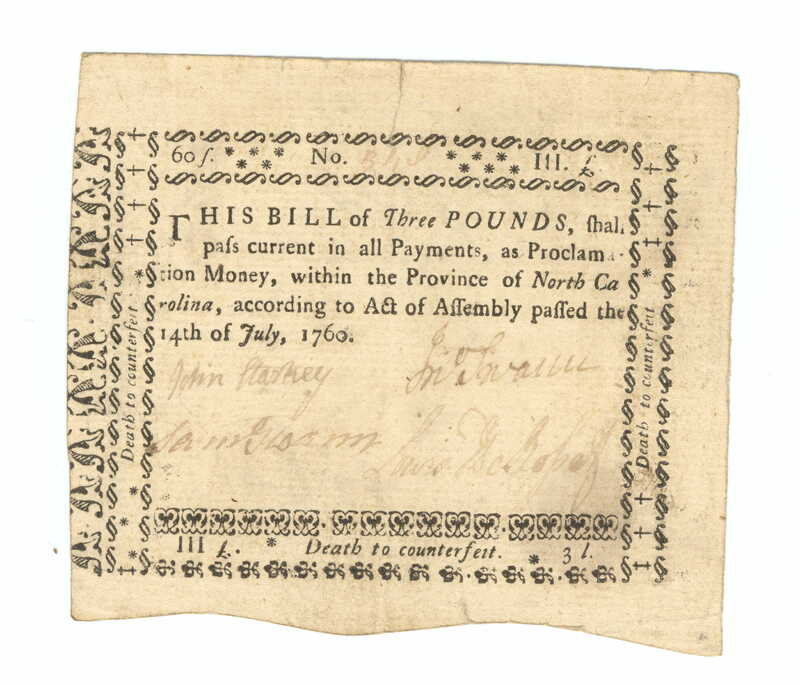 60 ſ. * * * * * * No. * * * * * * III. £
THIS BILL of Three POUNDS, ſhall
paſs current in all Payments, as Proclama-
tion Money, within the Province of North Ca
rolina, according to Act of Aſſembly paſſed the
14th of July, 1760.
John Starkey Jno Swann
Sam Swann
III £. * Death to counterfeit. * 3 l.
Death to counterfeit
Death to counterfeit